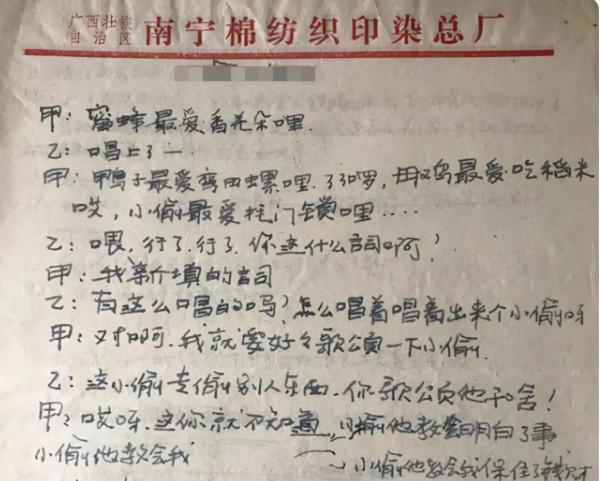 广西壮族
自治区 南宁棉纺织印染总厂
甲：蜜蜂最爱香花朵哩.
乙：唱上了一
甲：鸭子最爱弯田螺哩.了哪啰,最爱吃稻米
哎,小偷最爱挂门锁哩....
乙：喂,行了.行了.你这什么词啊!
甲：我新填的词
乙：有这么唱的吗?怎么唱着唱着出来个小偷呀
甲：对啊.我就要好好歌颂一下小偷.
乙：这小偷专偷别人东西.你歌颂他干啥!
甲：哎呀.这你就不知道 小偷他教会明白了事
小偷他教会我 小偷他教会我保住了钱财